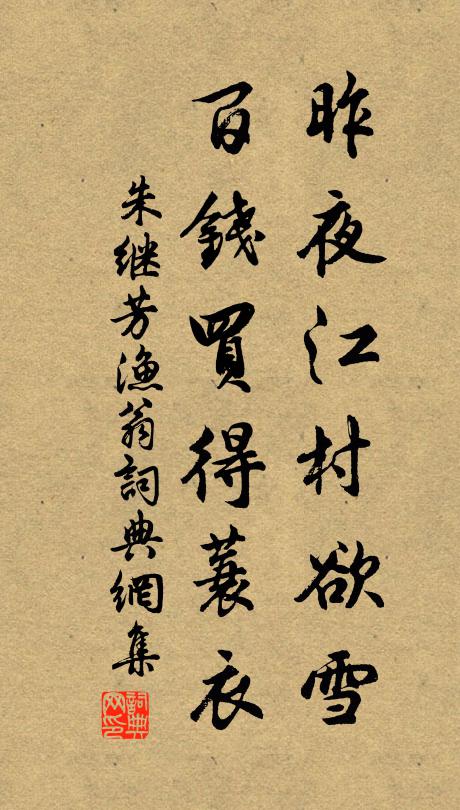 昨夜江村欲雪
百錢買得蓑衣
朱继芳漁翁詞典網集
詞典
网印